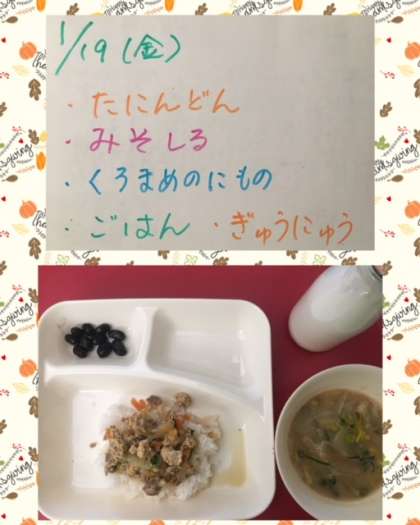 1/19(金)
・たにんどん
・みそしる
・くろまめのにもの
・ごはん ・ぎゅうにゅう